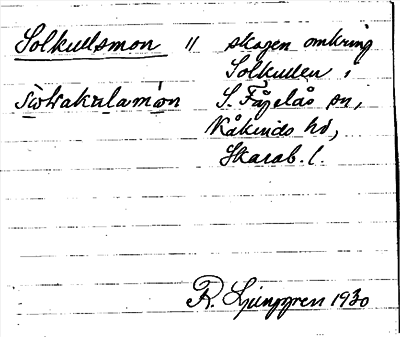 Solkullsmon " skogen omkring
Solkullen i
S. Fågelås sn,
Kåkinds hd,
Skarab. l.
R. Ljunggren 1930